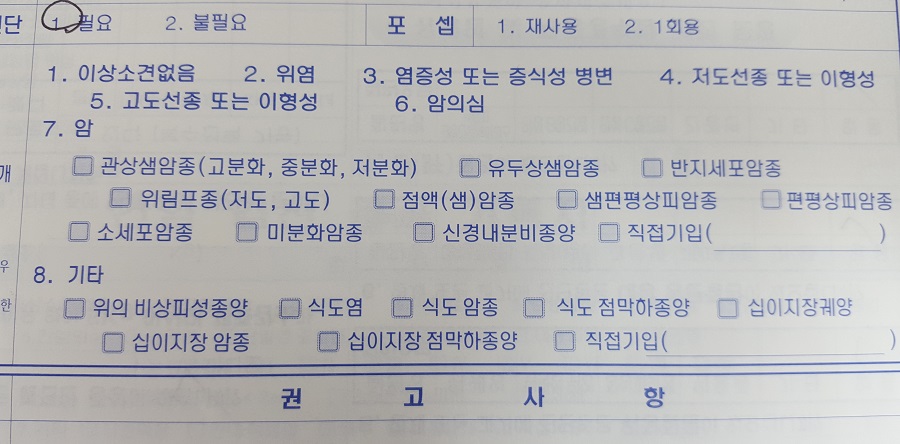 단 1. 필요 2. 불필요 포 셉 1. 재사용 2. 1회용
1. 이상소견없음 2. 위염 3. 염증성 또는 증식성 병변 4. 저도선종 또는 이형성
5. 고도선종 또는 이형성 6. 암의심
7. 암
개 □ 관상샘암종(고분화, 중분화, 저분화) □ 유두상샘암종 □ 반지세포암종
□ 위림프종(저도, 고도) □ 점액(샘)암종 □ 샘편평상피암종 □ 편평상피암종
□ 소세포암종 □ 미분화암종 □ 신경내분비종양 □ 직접기입( )
우
8. 기타
한 □ 위의 비상피성종양 □ 식도염 □ 식도 암종 □ 식도 점막하종양 □ 십이지장궤양
□ 십이지장 암종 □ 십이지장 점막하종양 □ 직접기입( )
권 고 사 항